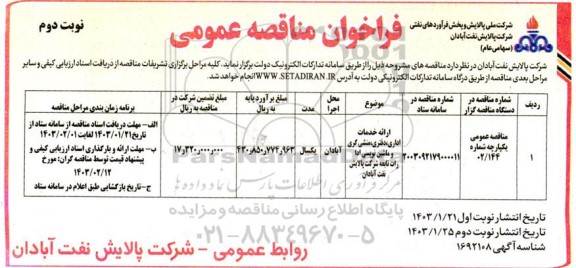 نوبت دوم
فراخوان مناقصه عمومی
شرکت ملی پالایش و پخش فرآورده‌های نفتی
شرکت پالایش نفت آبادان
(سهامی عام)
شرکت پالایش نفت آبادان در نظر دارد مناقصه های مشروحه ذیل را از طریق سامانه تدارکات الکترونیک دولت برگزار نماید. کلیه مراحل برگزاری تشریفات مناقصه از دریافت اسناد ارزیابی کیفی و سایر
مراحل بعدی مناقصه از طریق درگاه سامانه تدارکات الکترونیکی دولت به آدرس WWW.SETADIRAN.IR انجام خواهد شد.
ردیف
شماره مناقصه در دستگاه مناقصه گزار
شماره مناقصه در سامانه ستاد
موضوع
محل اجرا
مدت
مبلغ برآورد پایه به ریال
مبلغ تضمین شرکت در مناقصه به ریال
برنامه زمان بندی مراحل مناقصه
۱
مناقصه عمومی یکپارچه شماره ۰۲/۱۴۴
۲۰۰۳۰۹۲۱۷۹۰۰۰۰۱۱
ارائه خدمات
اداری،دفتری،منشی گری
و ماشین نویسی ادا
رات تابعه شرکت پالایش
نفت آبادان
آبادان
یکسال
۴۲۰،۸۵۰،۷۷۴،۹۶۳
۱۷،۳۲۰،۰۰۰،۰۰۰
الف- مهلت دریافت اسناد مناقصه از سامانه ستاد از
تاریخ ۱۴۰۳/۰۱/۲۱ لغایت ۱۴۰۳/۰۲/۰۱
ب- مهلت ارائه و بارگذاری اسناد ارزیابی کیفی و
پیشنهاد قیمت توسط مناقصه گران: مورخ
۱۴۰۳/۰۲/۱۲
ج- تاریخ بازگشایی طبق اعلام در سامانه ستاد
پایگاه اطلاع رسانی مناقصه و مزایده
۰۲۱-۸۸۳۴۹۶۷۰-۵
تاریخ انتشار نوبت اول ۱۴۰۳/۱/۲۱
تاریخ انتشار نوبت دوم ۱۴۰۳/۱/۲۵
شناسه آگهی ۱۶۹۲۱۰۸
روابط عمومی - شرکت پالایش نفت آبادان